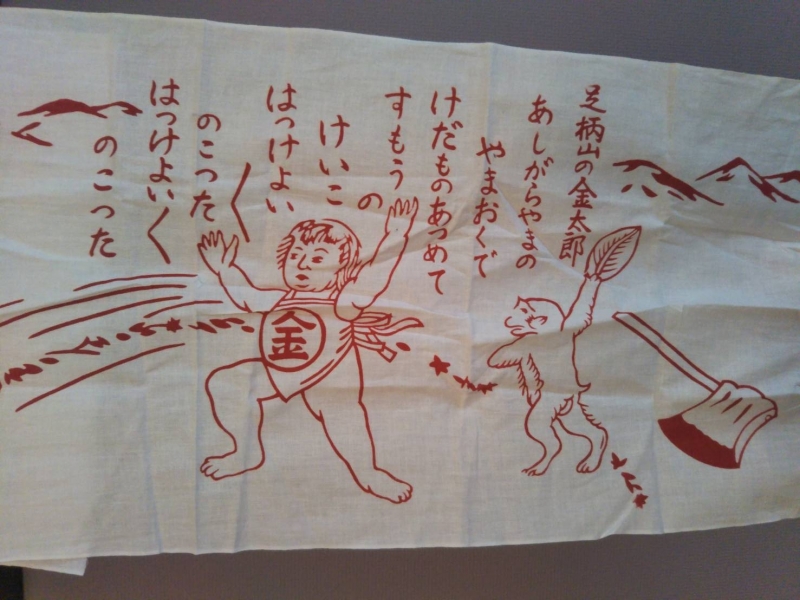 足柄山の金太郎
あしがらやまの
やまおくで
けだものあつめて
すもうの
けいこ
はっけよい〱
のこった
はっけよい〱
のこった
金